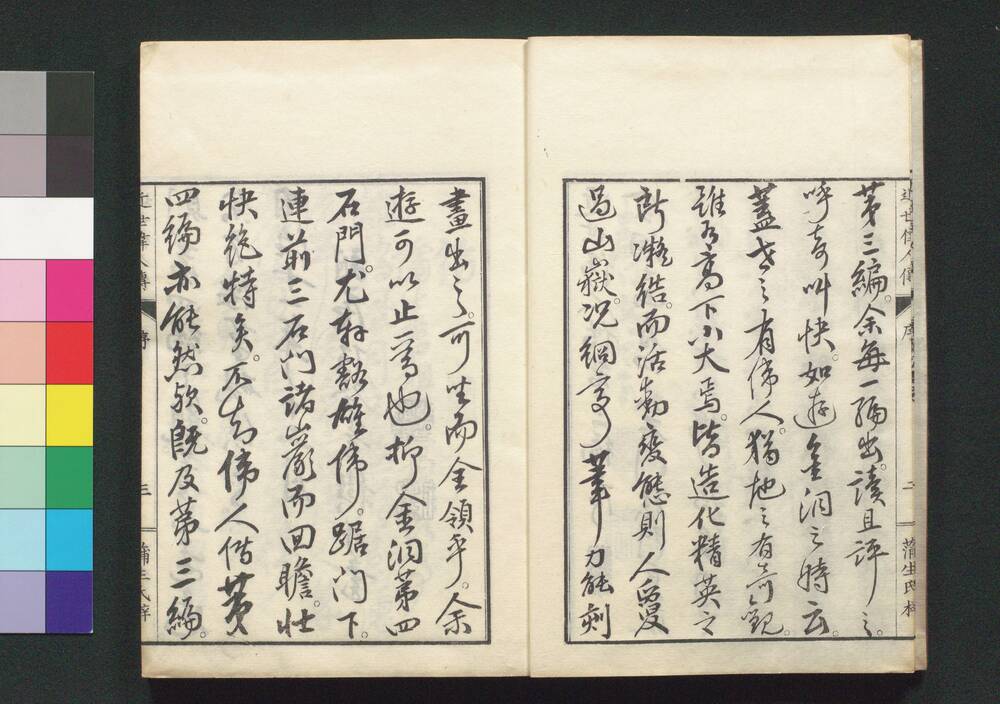 近世偉人傳 序 二 蒲生氏梓
第三編。余每一編出。讀且評之。
呼奇叫快。如遊金洞之時云。
蓋世之有偉人。猶地之有奇觀。
雖有高下小大焉。皆造化精英之
所凝結。而活動變態則人更
過山嶽。况絅亭筆力能刻
畫出之。可坐而全領乎。余
遊可以止也。抑金洞第四
石門。尤軒豁雄偉。踞門下。
連前三石門諸巖而回瞻。壯
快絕特矣。不知偉人傳第
四編亦能然歟。既及第三編。
近世偉人傳 序 三 蒲生氏梓